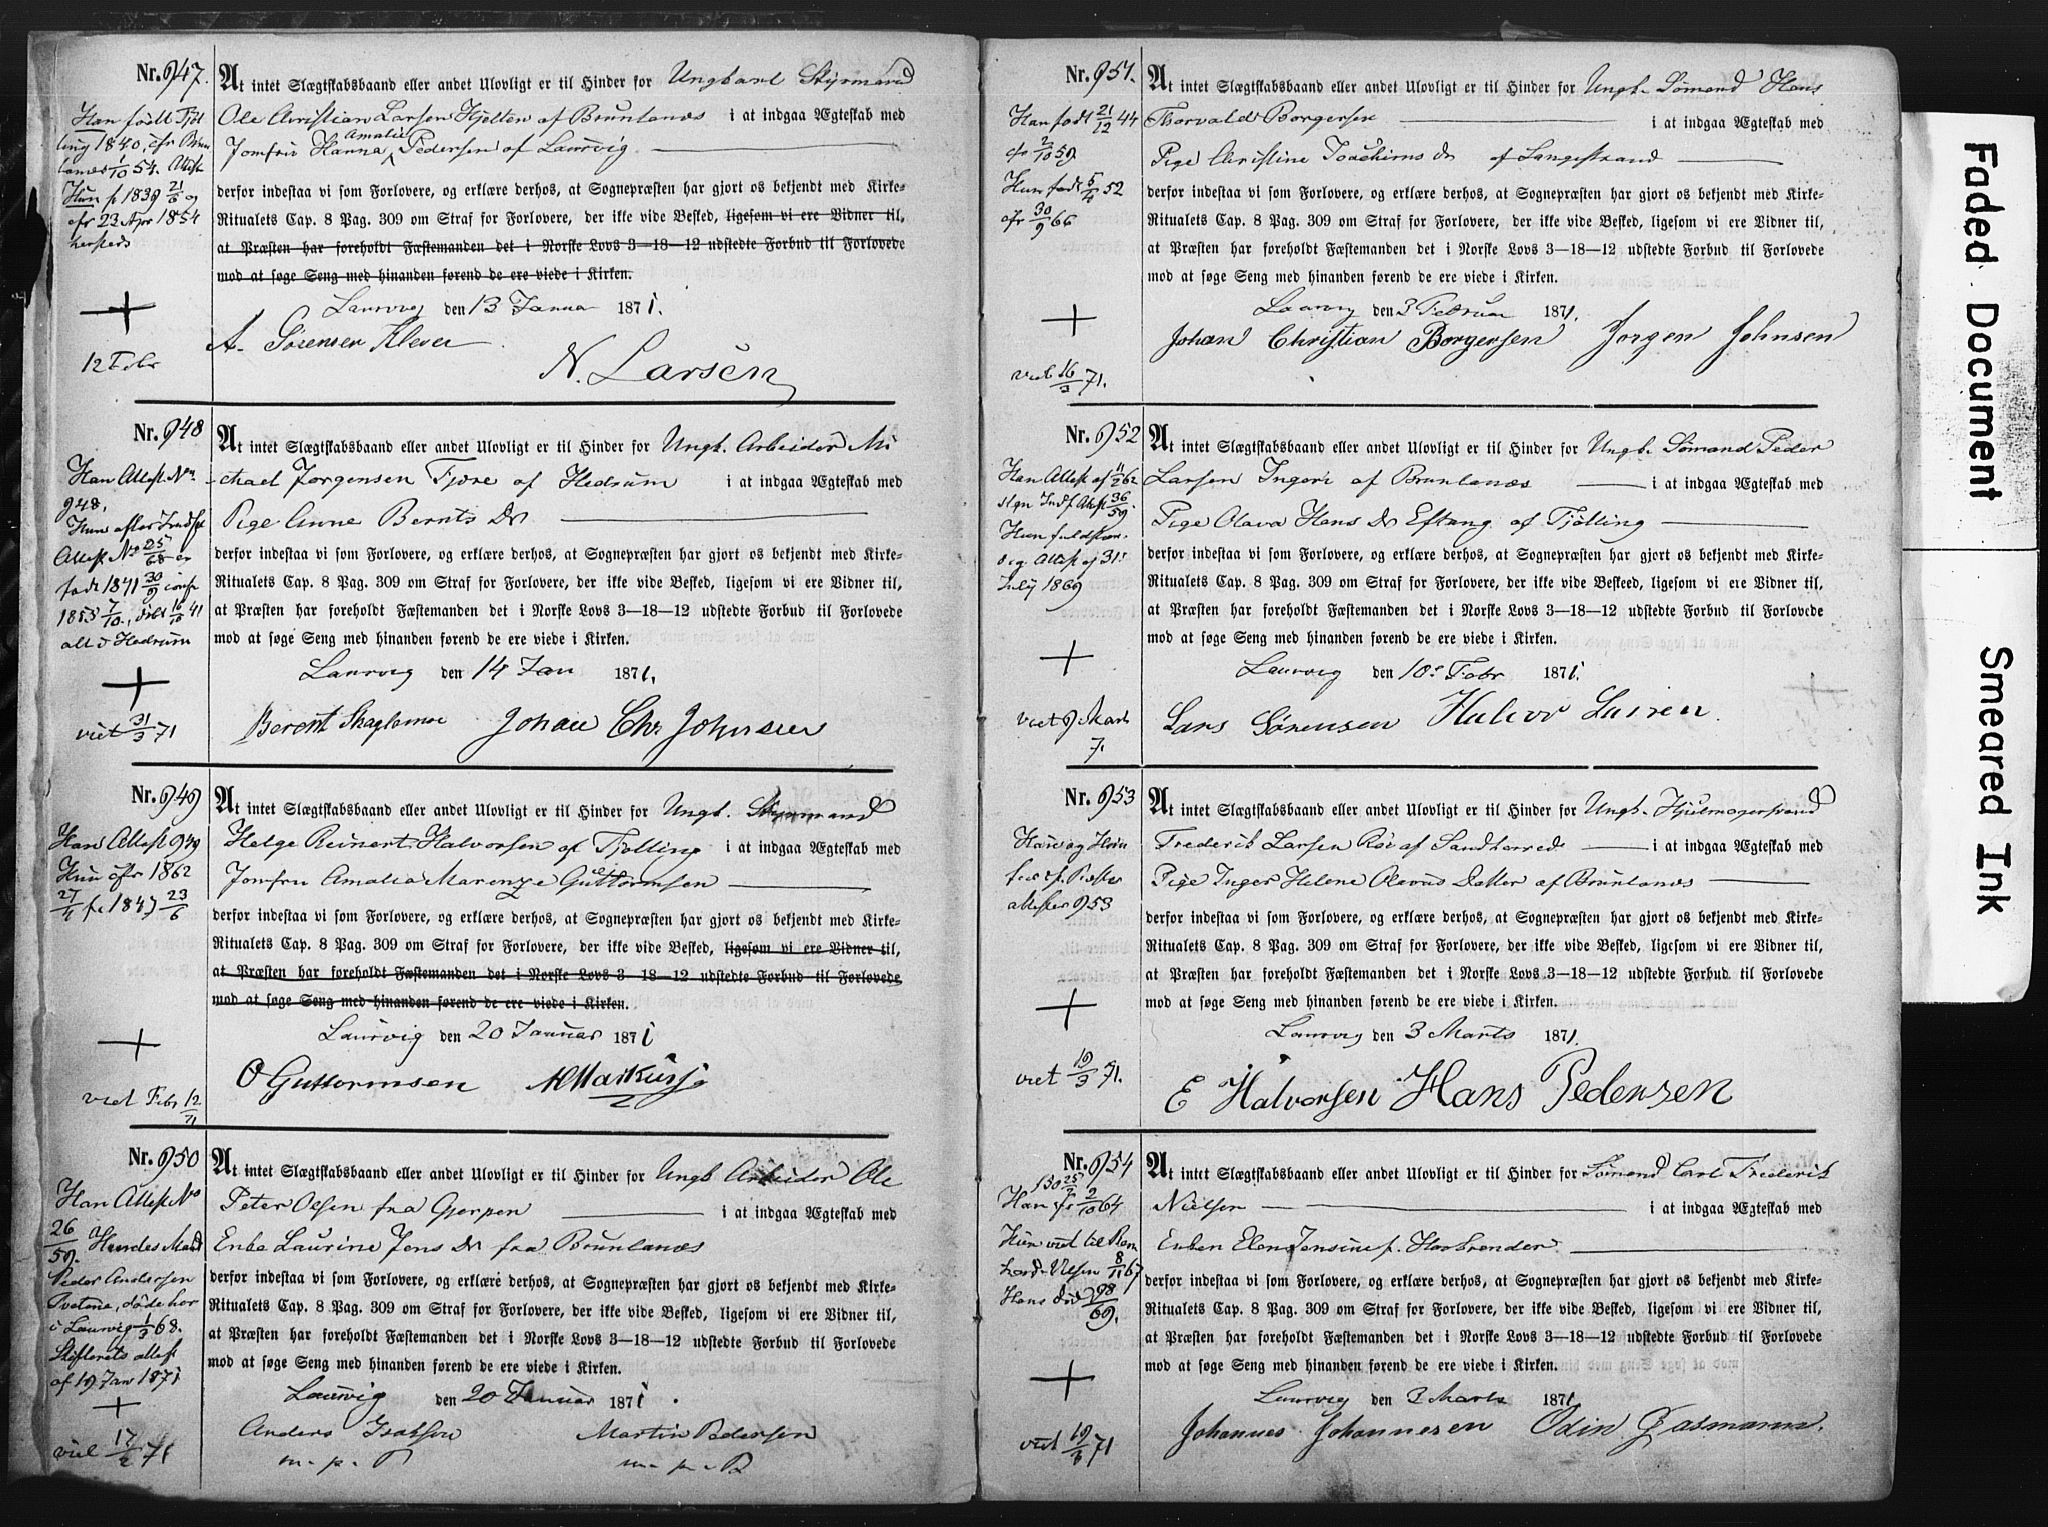 Nr. 947.
At intet Slægtskabsbaand eller andet Ulovligt er til Hinder for Ungkarl Styrmand
Ole Christian Larsen Hjelten af Brunlanes i at indgaa Ægteskab med
Jomfru Hanna Amalie Pedersen af Laurvig
derfor indestaa vi som Forlovere, og erklære derhos, at Sognepræsten har gjort os bekjendt med Kirke-
Ritualets Cap. 8 Pag. 309 om Straf for Forlovere, der ikke vide Besked, ligesom vi ere Vidner til,
at Præsten har foreholdt Fæstemanden det i Norske Lovs 3—18—12 udstedte Forbud til Forlovede
mod at søge Seng med hinanden førend de ere viede i Kirken.
Laurvig den 13 Janua 1871.
A. Sørensen Klever
N. Larsen
Han født Tjöl
ling 1840, cfr Brun
lanes 1/10 54. Attest
Hun f 1839 21/5 og
cfr 23 Apr 1854
12 Febr
Nr. 948
At intet Slægtskabsbaand eller andet Ulovligt er til Hinder for Ungk. Arbeider Mi
chael Jörgensen Fjöre af Hedrum i at indgaa Ægteskab med
Pige Anne Bernts Dr
derfor indestaa vi som Forlovere, og erklære derhos, at Sognepræsten har gjort os bekjendt med Kirke-
Ritualets Cap. 8 Pag. 309 om Straf for Forlovere, der ikke vide Besked, ligesom vi ere Vidner til,
at Præsten har foreholdt Fæstemanden det i Norske Lovs 3—18—12 udstedte Forbud til Forlovede
mod at søge Seng med hinanden førend de ere viede i Kirken.
Laurvig den 14 Jan 1871.
Berent Skaglemoe Johan Chr Johnsen
Han Attest No
948.
Hun efter Indf
Attest No 25/68 er
født 1841 30/9 conf
1853 7/10, döbt 16/10 41
alt i Hedrum
viet 31/3 71
Nr. 949
At intet Slægtskabsbaand eller andet Ulovligt er til Hinder for Ungk. Styrmand
Helge Reinert Halvorsen af Tjölling i at indgaa Ægteskab med
Jomfru Amalia Marenze Guttormsen
derfor indestaa vi som Forlovere, og erklære derhos, at Sognepræsten har gjort os bekjendt med Kirke-
Ritualets Cap. 8 Pag. 309 om Straf for Forlovere, der ikke vide Besked, ligesom vi ere Vidner til,
at Præsten har foreholdt Fæstemanden det i Norske Lovs 3—18—12 udstedte Forbud til Forlovede
mod at søge Seng med hinanden førend de ere viede i Kirken.
Laurvig den 20 Januar 1871
O Guttormsen M Markussen
Hans Attest 949
Hun cfr 1862
27/4 f. 1847 23/6
viet Febr 12/71
Nr. 950
At intet Slægtskabsbaand eller andet Ulovligt er til Hinder for Ungk Arbeider Ole
Peter Olsen fra Gjerpen i at indgaa Ægteskab med
Enke Laurine Jens Dr fra Brunlanes
derfor indestaa vi som Forlovere, og erklære derhos, at Sognepræsten har gjort os bekjendt med Kirke-
Ritualets Cap. 8 Pag. 309 om Straf for Forlovere, der ikke vide Besked, ligesom vi ere Vidner til,
at Præsten har foreholdt Fæstemanden det i Norske Lovs 3—18—12 udstedte Forbud til Forlovede
mod at søge Seng med hinanden førend de ere viede i Kirken.
Laurvig den 20 Januar 1871.
Anders Isaksen Martin Pedersen
m. p. P m. p. P
Han Attest No
26/59. Hendes Mand
Peder Andersen
döde her
i Laurvig 1/3 68.
Skifterets attest
af 19 Jan 1871
viet 17/2 71
Nr. 951.
At intet Slægtskabsbaand eller andet Ulovligt er til Hinder for Ungk. Sömand Hans
Thorvald Borgersen i at indgaa Ægteskab med
Pige Christine Joachims dr af Langestrand
derfor indestaa vi som Forlovere, og erklære derhos, at Sognepræsten har gjort os bekjendt med Kirke-
Ritualets Cap. 8 Pag. 309 om Straf for Forlovere, der ikke vide Besked, ligesom vi ere Vidner til,
at Præsten har foreholdt Fæstemanden det i Norske Lovs 3—18—12 udstedte Forbud til Forlovede
mod at søge Seng med hinanden førend de ere viede i Kirken.
Laurvig den 3 Februar 1871.
Johan Christian Borgersen Jorgen Johnsen
Han født 21/12 44
cfr 2/10 59
Hun født 5/4 52
cfr 30/9 66
viet 16/3 71.
Nr. 952
At intet Slægtskabsbaand eller andet Ulovligt er til Hinder for Ungk. Sömand Peder
Larsen Ingori af Brunlanes i at indgaa Ægteskab med
Pige Olava Hans Dr Eftang af Tjölling
derfor indestaa vi som Forlovere, og erklære derhos, at Sognepræsten har gjort os bekjendt med Kirke-
Ritualets Cap. 8 Pag. 309 om Straf for Forlovere, der ikke vide Beskeed, ligesom vi ere Vidner til,
at Præsten har foreholdt Fæstemanden det i Norske Lovs 3—18—12 udstedte Forbud til Forlovede
mod at søge Seng med hinanden førend de ere viede i Kirken.
Laurvig den 10. Febr 1871.
Lars Sørensen Halvor Larsen
Han Attest af 11/2 62
Indf Attest 36/59.
Hun fuldstæn
dig Attest af 31.
July 1869
viet 9 Marts
71
Nr. 953
At intet Slægtskabsbaand eller andet Ulovligt er til Hinder for Ungk. Hjulmagersvend
Frederik Larsen Röi af Sandherred i at indgaa Ægteskab med
Pige Inger Helene Olavus Datter af Brunlanes
derfor indestaa vi som Forlovere, og erklære derhos, at Sognepræsten har gjort os bekjendt med Kirke-
Ritualets Cap. 8 Pag. 309 om Straf for Forlovere, der ikke vide Besked, ligesom vi ere Vidner til,
at Præsten har foreholdt Fæstemanden det i Norske Lovs 3—18—12 udstedte Forbud til Forlovede
mod at søge Seng med hinanden førend de ere viede i Kirken.
Laurvig den 3 Marts 1871.
E Halvorsen Hans Pedersen
Han og Hun
attester 953
viet 19/3 71.
Nr. 954
At intet Slægtskabsbaand eller andet Ulovligt er til Hinder for Sömand Carl Frederik
Nielsen i at indgaa Ægteskab med
Enken Elen Jensine f. Harbrender
derfor indestaa vi som Forlovere, og erklære derhos, at Sognepræsten har gjort os bekjendt med Kirke-
Ritualets Cap. 8 Pag. 309 om Straf for Forlovere, der ikke vide Besked, ligesom vi ere Vidner til,
at Præsten har foreholdt Fæstemanden det i Norske Lovs 3—18—12 udstedte Forbud til Forlovede
mod at søge Seng med hinanden førend de ere viede i Kirken.
Laurvig den 3 Marts 1871
Johannes Johannesen Odin Gasmann.
Han cfr 2/10 64
Hun viet til
8/11 67
Hans död 98/69.
viet 19/3 71
Faded Document
Smeared Ink